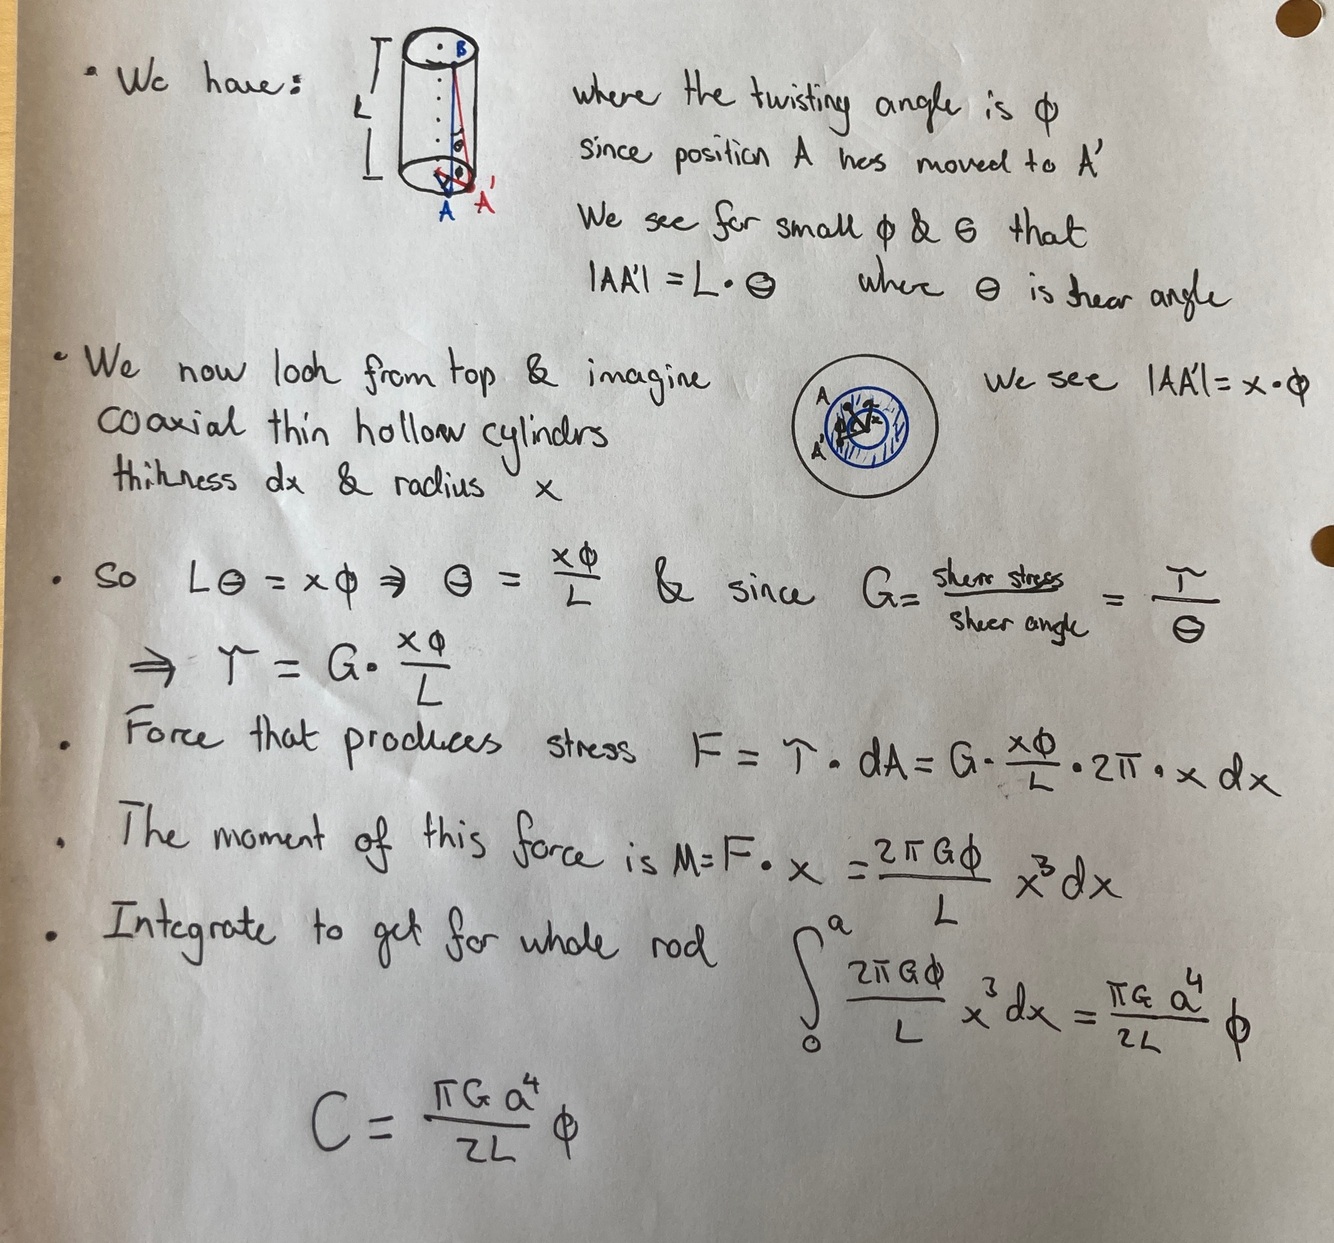 • We have:
L
B
θ
ϕ
A A'
where the twisting angle is ϕ
since position A has moved to A'
We see for small ϕ & θ that
|AA'| = L · θ where θ is shear angle
• We now look from top & imagine
coaxial thin hollow cylindrs
thihness dx & radius x
A
A'
We see |AA'| = x · ϕ
• So Lθ = xϕ ⇒ θ = xϕ/L & since G = shear stress/shear angle = τ/θ
⇒ τ = G · xϕ/L
• Force that produces stress F = τ · dA = G · xϕ/L · 2π · x dx
• The moment of this force is M = F · x = 2πGϕ/L x³ dx
• Integrate to get for whole rod ∫₀ᵃ 2πGϕ/L x³ dx = πG a⁴/2L ϕ
C = πG a⁴/2L ϕ